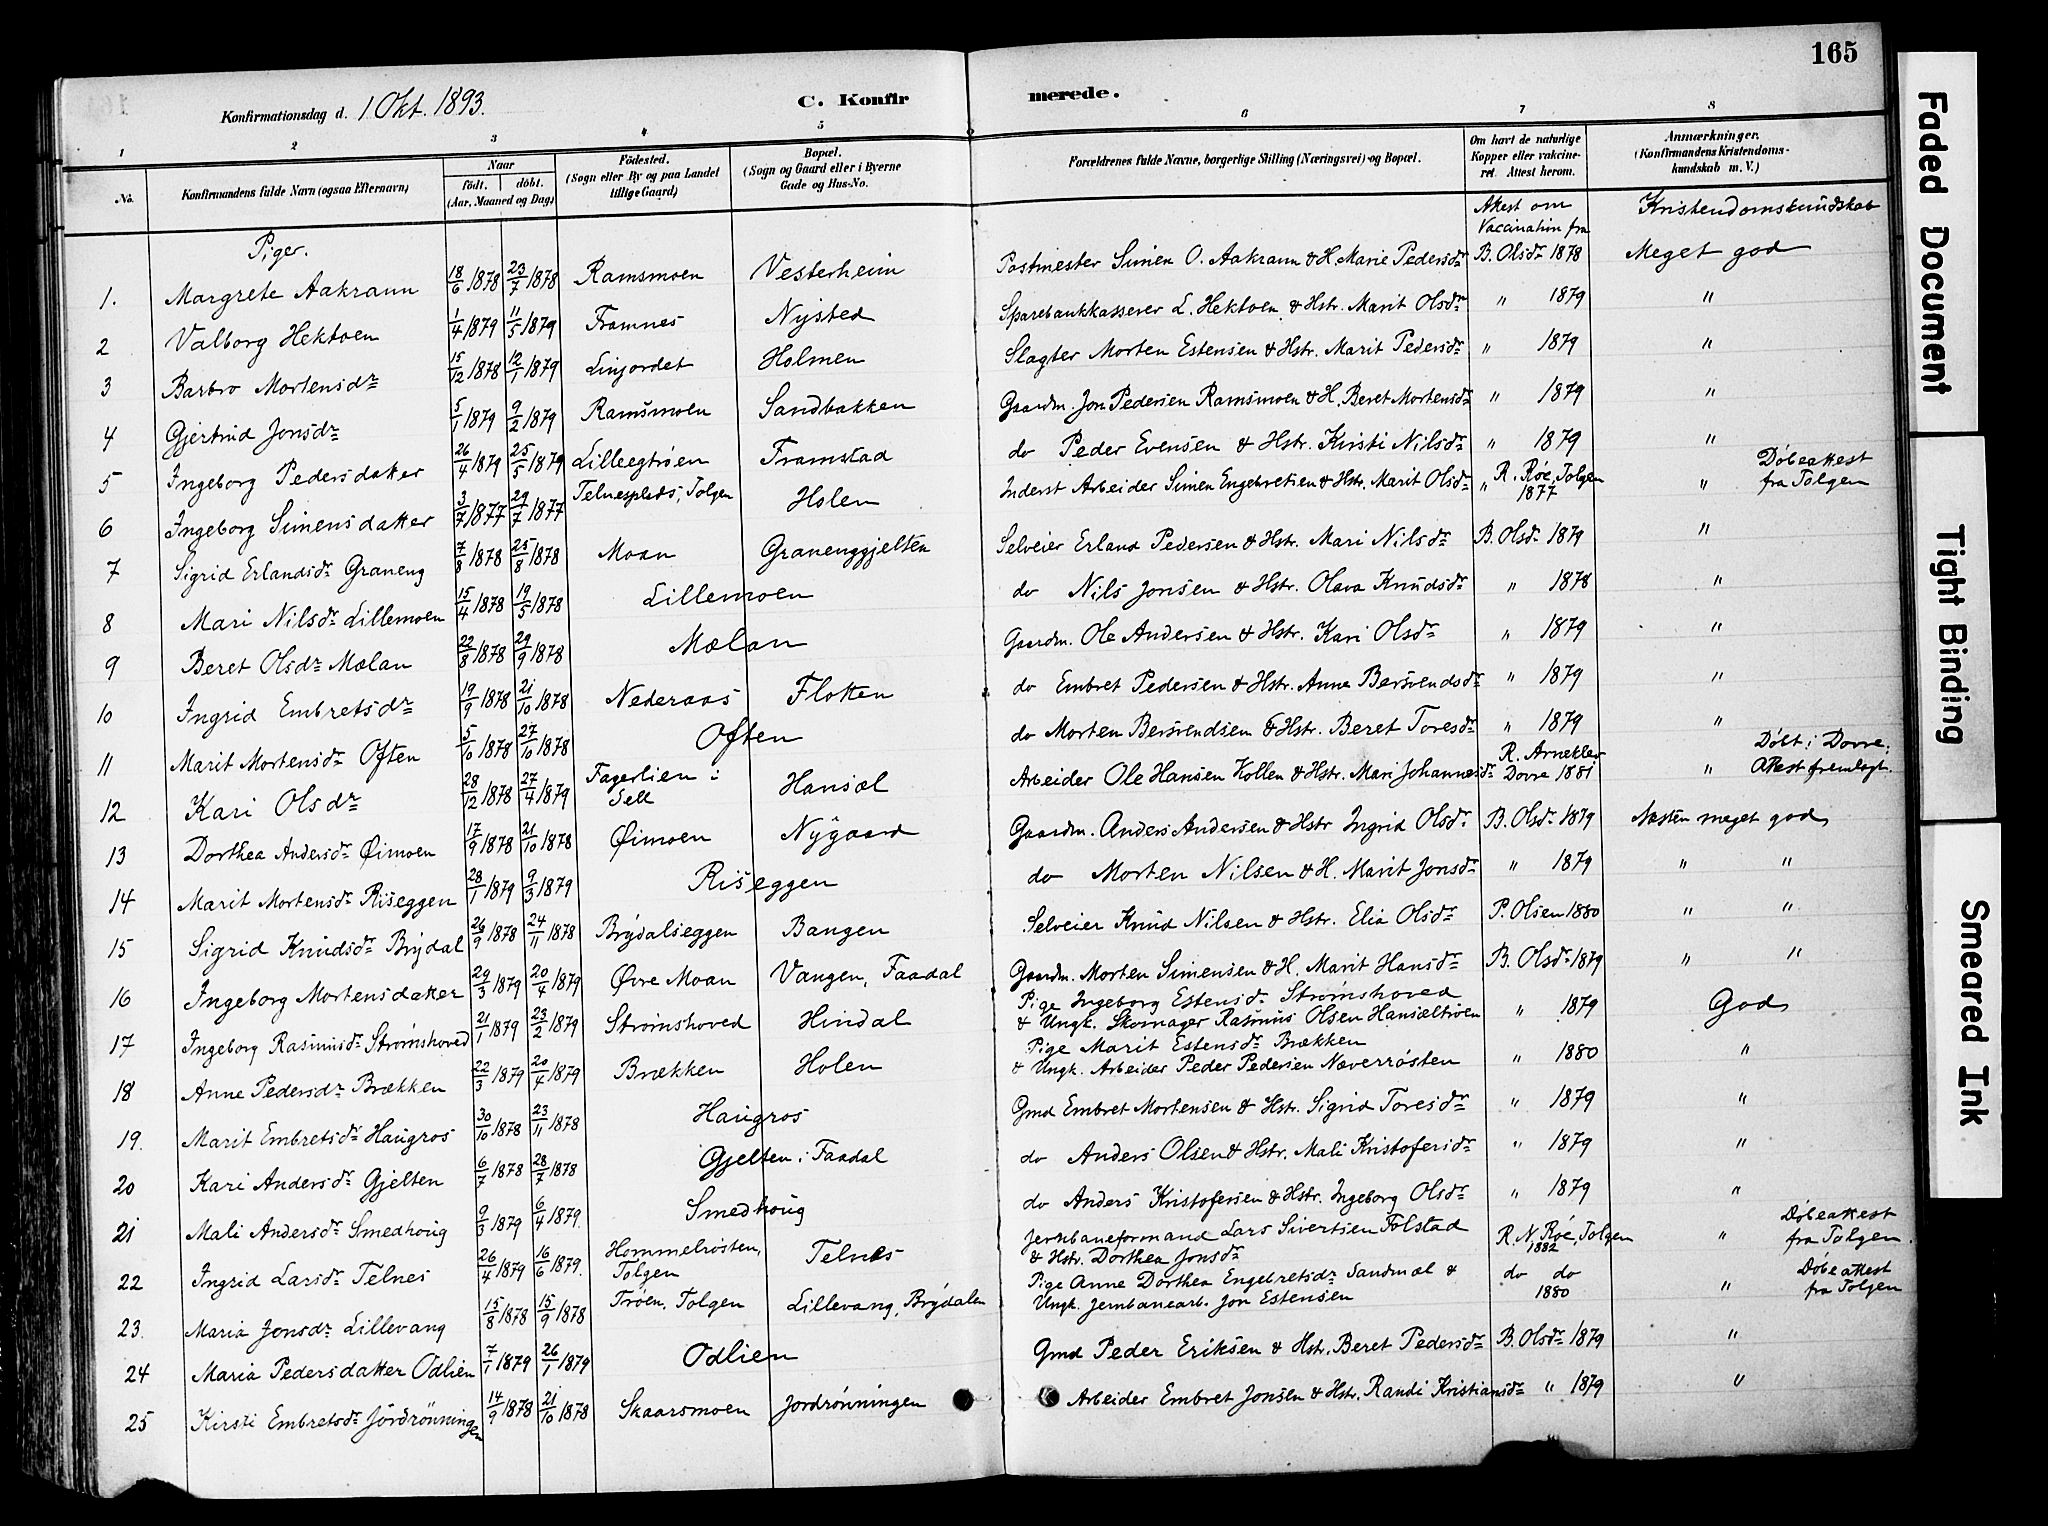 165
Konfirmationsdag d. 1 Okt. 1893.
C. Konfirmerede.
1 2 3 4 5 6 7 8
No. Konfirmandens fulde Navn (ogsaa Efternavn) Naar født. døbt. (Aar, Maaned og Dag) Fødested. (Sogn eller By og paa Landet tillige Gaard) Bopæl. (Sogn og Gaard eller i Byerne Gade og Hus-No. Forældrenes fulde Navne, borgerlige Stilling (Næringsvei) og Bopæl. Om havt de naturlige Kopper eller vaccineret. Attest herom. Anmærkninger. (Konfirmandens Kristendomskundskab m. V.)
Piger. Attest om Vaccination fra Kristendomskundskab
1. Margrete Aakrann 18/6 1878 23/7 1878 Ramsmoen Vesterheim Postmester Simen O. Aakrann & H. Marie Pedersdr B. Olsdr 1878 Meget god
2 Valborg Hektoen 1/4 1879 11/5 1879 Framnes Nysted Sparebankkasserer L. Hektoen & Hstr. Marit Olsdr " 1879 "
3 Barbro Mortensdr 15/12 1878 12/1 1879 Linjordet Holmen Slagter Morten Estensen & Hstr. Marit Pedersdr " 1879 "
4 Gjertrud Jonsdr 5/1 1879 9/2 1879 Ramsmoen Sandbakken Gaardm. Jon Pedersen Ramsmoen & H. Beret Mortensdr " 1879 "
5 Ingeborg Pedersdatter 26/4 1879 25/5 1879 Lilleegtrøen Framstad do Peder Evensen & Hstr. Kirsti Nilsdr " 1879 "
6 Ingeborg Simensdatter 3/7 1877 29/7 1877 Telnesplads, Tolgen Holen Inderst Arbeider Simen Engebretsen & Hstr. Marit Olsdr " R. Røe, Tolgen 1877 " Døbeattest fra Tolgen
7 Sigrid Erlandsdr Graneng 7/8 1878 25/8 1878 Moan Granenggjelten Selveier Erland Pedersen & Hstr. Mari Nilsdr B. Olsdr 1879 "
8 Mari Nilsdr Lillemoen 15/4 1878 19/5 1878 Lillemoen do Nils Jonsen & Hstr. Olava Knudsdr " 1878 "
9 Beret Olsdr Mælan 22/8 1878 29/9 1878 Mælan Gaardm. Ole Andersen & Hstr. Kari Olsdr " 1879 "
10 Ingrid Embretsdr 19/9 1878 21/10 1878 Nederaas Flotten do Embret Pedersen & Hstr. Anne Bersvendsdr " 1879 "
11 Marit Mortensdr Often 5/10 1878 27/10 1878 Often do Morten Bersvendsen & Hstr. Beret Toresdr " 1879 "
12 Kari Olsdr 28/12 1878 27/4 1879 Fagerlien i Sell Hansæl Arbeider Ole Hansen Kollen & Hstr. Mari Johannesdr R. Arneklev Dovre 1881 " Døbt i Dovre. Attest fremlagt.
13 Dorthea Andersdr Øimoen 17/9 1878 21/10 1878 Øimoen Nygaard Gaardm. Anders Andersen & Hstr Ingrid Olsdr B. Olsdr 1879 Næsten meget god
14 Marit Mortensdr Riseggen 28/1 1879 9/3 1879 Riseggen do Morten Nilsen & H. Marit Jonsdr " 1879 " "
15 Sigrid Knudsdr Brydal 26/9 1878 24/11 1878 Brydalseggen Bangen Selveier Knud Nilsen & Hstr. Elia Olsdr P. Olsen 1880 " "
16 Ingeborg Mortensdatter 29/3 1879 20/4 1879 Øvre Moan Vangen, Faadal Gaardm. Morten Simensen & H. Marit Hansdr B. Olsdr 1879 " "
17 Ingeborg Rasmusdr Strømshoved 21/1 1879 23/2 1879 Strømshoved Hindal Pige Ingeborg Estensdr Strømshoved & Ungk. Skomager Rasmus Olsen Hansæltrøen " 1879 God
18 Anne Pedersdr Brækken 22/3 1879 20/4 1879 Brækken Holen Pige Marit Estensdr Brækken & Ungk. Arbeider Peder Pedersen Næverrøsten " 1880 "
19. Marit Embretsdr Haugros 30/10 1878 23/11 1878 Haugros Gmd Embret Mortensen & Hstr. Sigrid Toresdr " 1879 "
20 Kari Andersdr Gjelten 6/7 1878 28/7 1878 Gjelten i Faadal do Anders Olsen & Hstr. Mali Kristofersdr " 1879 "
21 Mali Andersdr Smedhoug 9/3 1879 6/4 1879. Smedhoug do Anders Kristofersen & Hstr. Ingeborg Olsdr " 1879 "
22 Ingrid Larsdr Telnes 26/4 1879 16/6 1879. Hommelrøsten, Tolgen Telnes Jernbaneformand Lars Sivertsen Folstad & Hstr. Dorthea Jonsdr R. N. Røe, Tolgen 1882 " Døbeattest fra Tolgen.
23. Maria Jonsdr Lillevang 15/8 1878 15/9 1878 Trøen, Tolgen Lillevang, Brydalen Pige Anne Dorthea Engebretsdr Sandmæl & Ungk. Jernbanearb. Jon Estensen do do 1880 " Døbeattest fra Tolgen
24 Maria Pedersdatter Odlien 7/1 1879 26/1 1879 Odlien Gmd Peder Eriksen & Hstr. Beret Pedersdr B. Olsdr 1879 "
25 Kirsti Embretsdr Jordrønningen 14/9 1878 21/10 1878 Skaarsmoen Jordrønningen Arbeider Embret Jonsen & Hstr. Randi Kristiansdr " 1879 "
Faded Document
Tight Binding
Smeared Ink